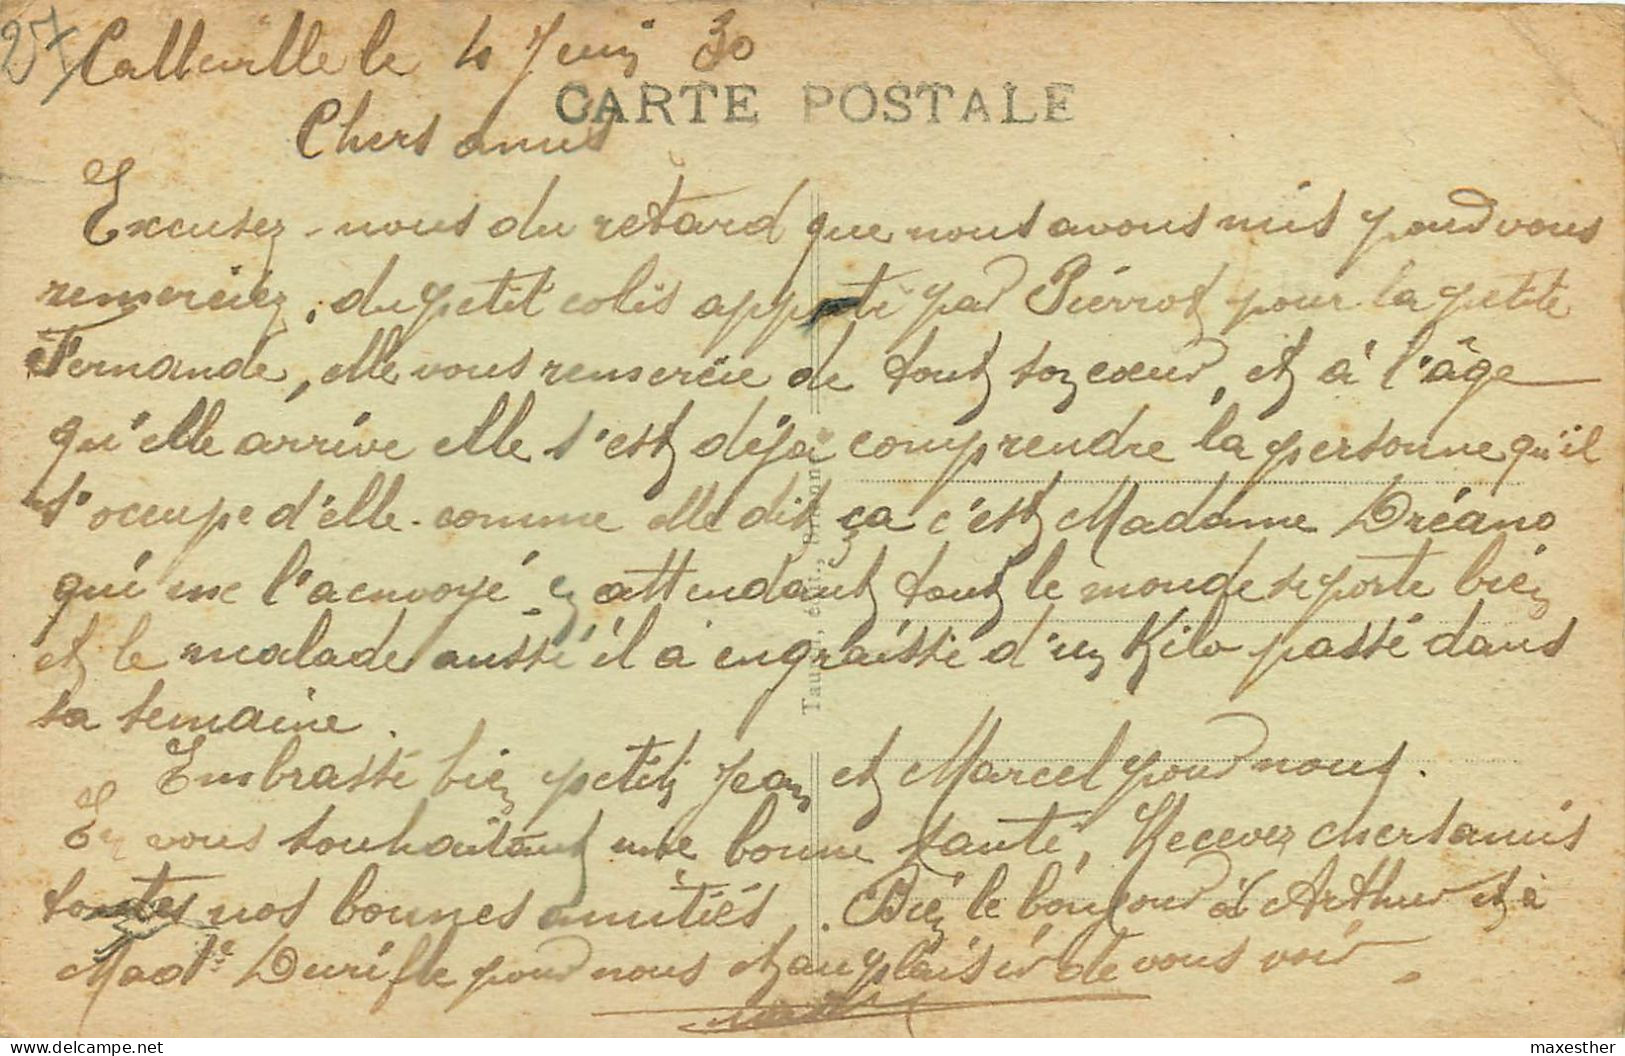 27
Calleville le 4 Juin 30
CARTE POSTALE
Chers amis
Excusez-nous du retard que nous avons mis pour vous
remerciéz, du petit colis apporté par Piérrot pour la petite
Fernande, elle vous remercie de tout son cœur, et à l'âge
qu'elle arrive elle s'est déja comprendre la personne qu'il
s'occupe d'elle. comme elle dit ça c'est Madame Dréano
qui me l'a envoyé en attendant tout le monde se porte bien
et le malade aussi il a engraissé d'un Kilo passé dans
sa semaine.
Embrassé bien petit Jean et Marcel pour nous.
En vous souhaitant une bonne santé, Recevez chers amis
toutes nos bonnes amitiés. Bien le bonjour à Arthur et à
Mad^e Durifle pour nous et au plaisir de vous voir
Taut, édit.,
Delcampe.net
maxesther